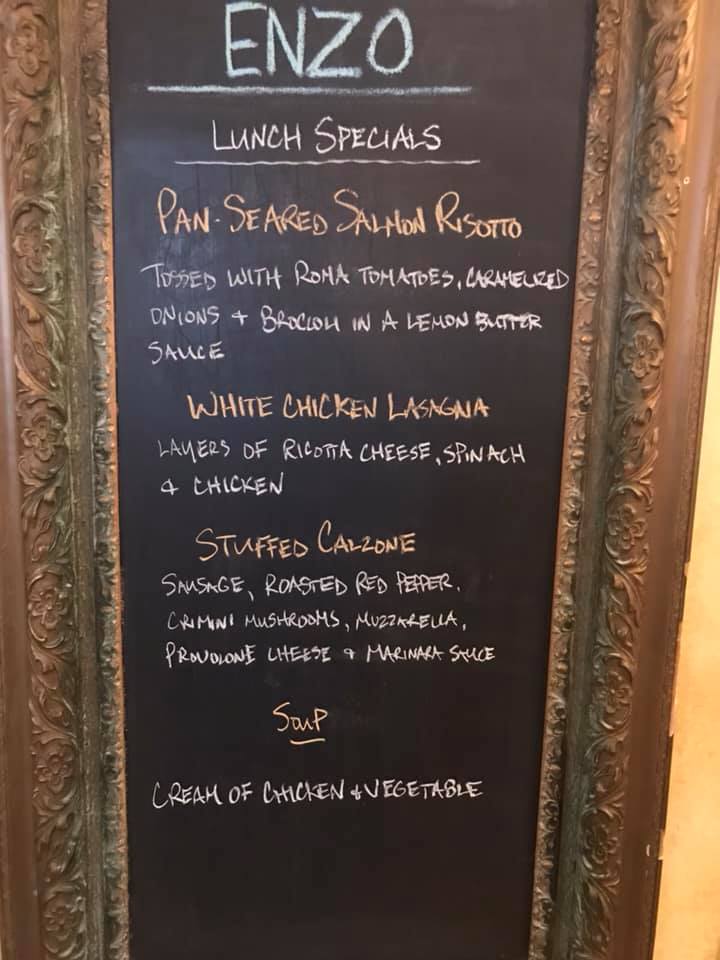 ENZO
LUNCH SPECIALS
PAN-SEARED SALMON RISOTTO
TOSSED WITH ROMA TOMATOES, CARAMELIZED
ONIONS & BROCCOLI IN A LEMON BUTTER
SAUCE
WHITE CHICKEN LASAGNA
LAYERS OF RICOTTA CHEESE, SPINACH
& CHICKEN
STUFFED CALZONE
SAUSAGE, ROASTED RED PEPPER,
CRIMINI MUSHROOMS, MUZZARELLA,
PROVOLONE CHEESE & MARINARA SAUCE
SOUP
CREAM OF CHICKEN & VEGETABLE